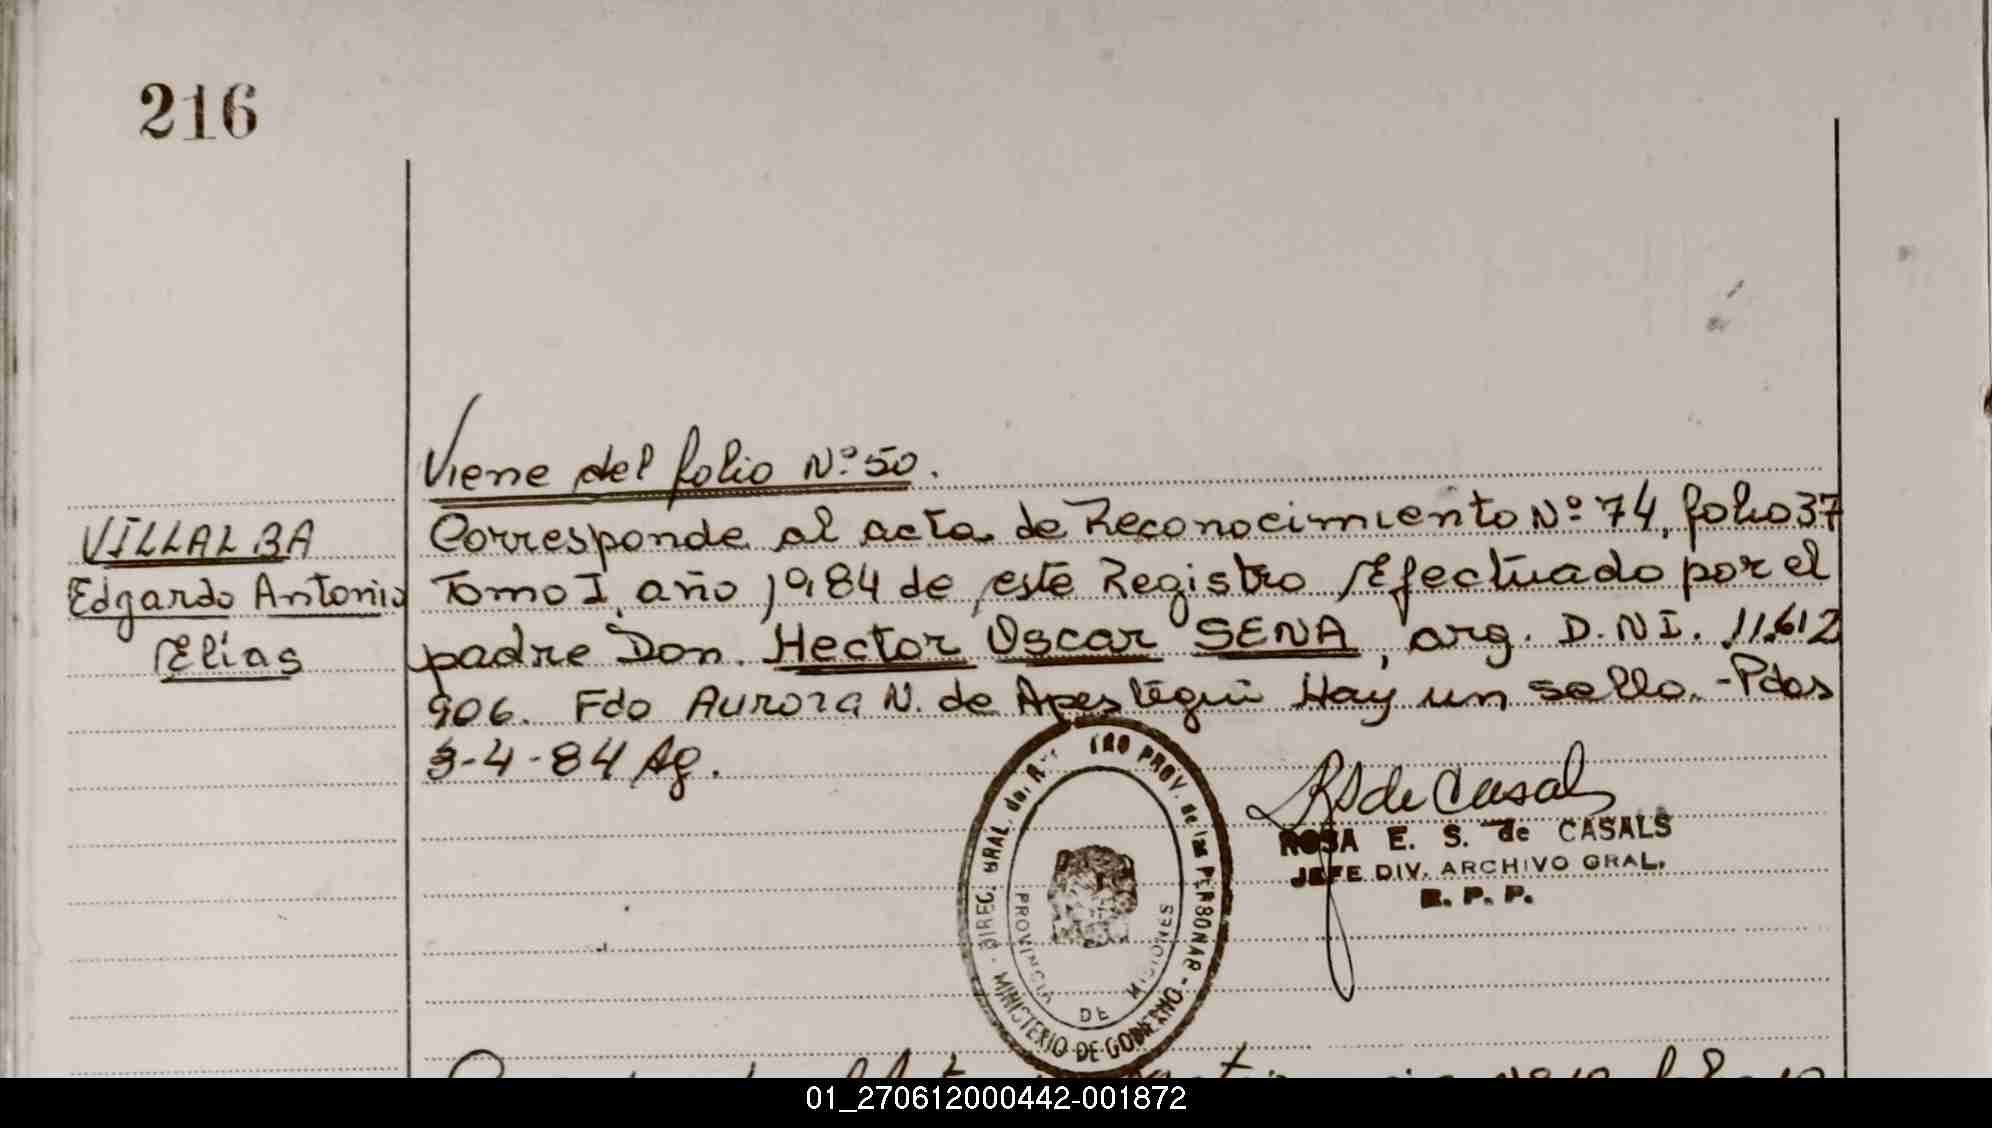 216
Viene del folio Nº 50.
VILLALBA
Edgardo Antonio
Elias
Corresponde al acta de Reconocimiento Nº 74, folio 37
Tomo I, año 1984 de este Registro Efectuado por el
padre Don. Hector Oscar SENA, arg. D.NI. 11.612
906. Fdo Aurora N. de Apestegui Hay un sello. - Pdas
3-4-84 Ag.
RS de Casals
ROSA E. S. de CASALS
JEFE DIV. ARCHIVO GRAL.
R. P. P.
DIREC. GRAL. del PROV. de las PERSONAS - MINISTERIO DE GOBIERNO -
PROVINCIA DE MISIONES
01_270612000442-001872